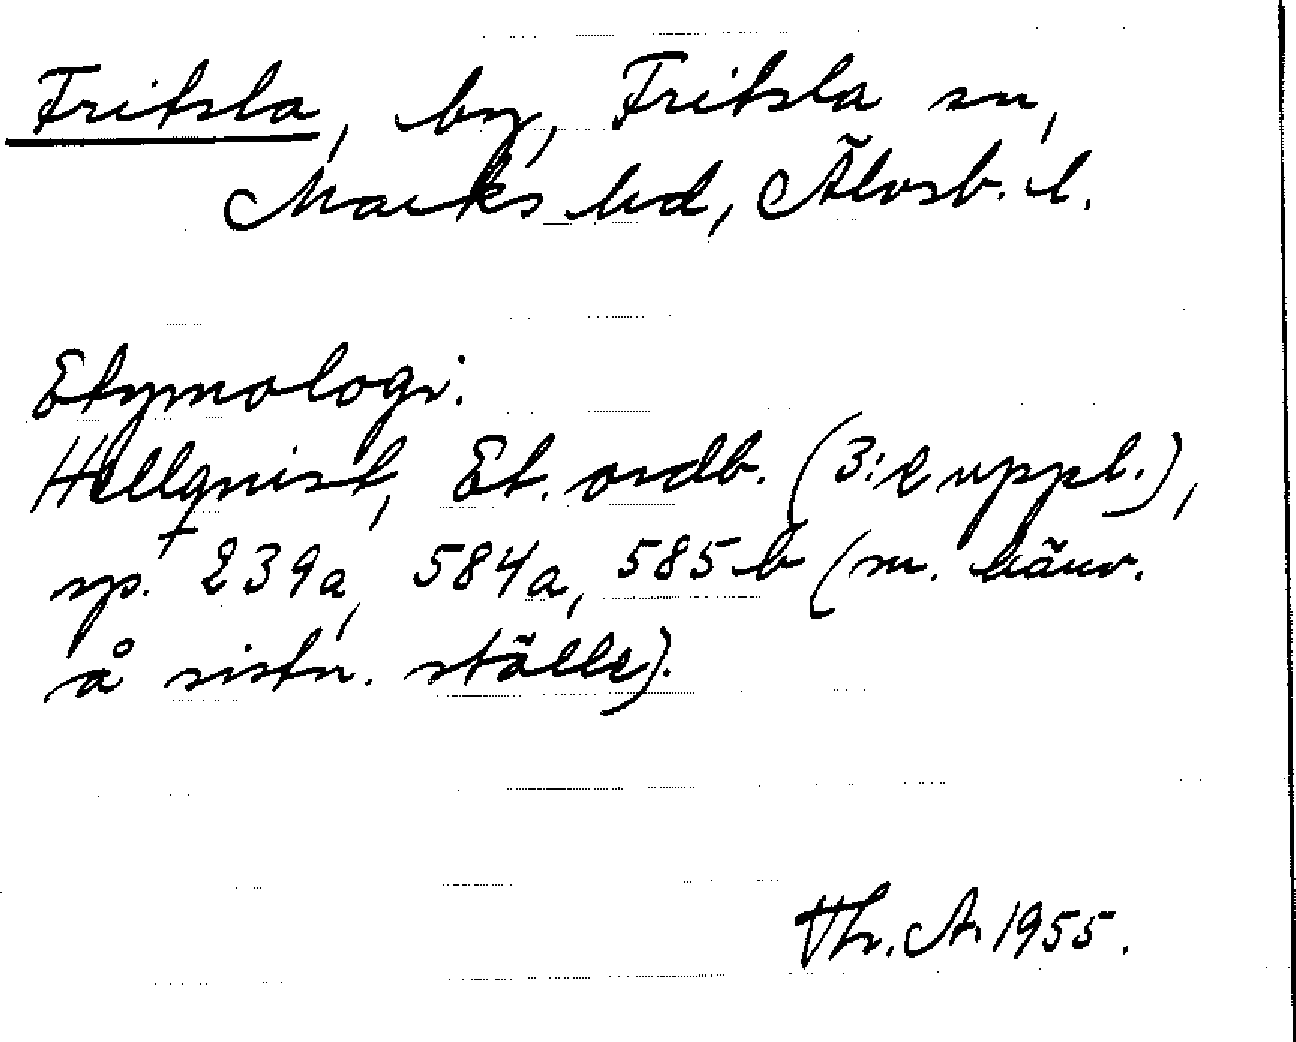 Fritsla, by, Fritsla sn,
Marks hd, Älvsb. l.
Etymologi.
Hellquist, Et. ordb. (3:e uppl.),
sp. 239a, 584a, 585b (m. hänv.
å sistn. ställe).
Thr. A. 1955.